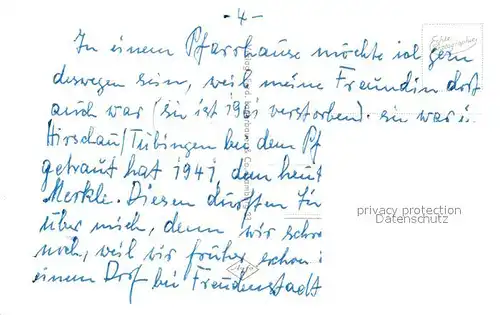 - 4 -
In einem Pfarrhause möchte ich gern
deswegen sein, weil meine Freundin dort
auch war (sie ist 1961 verstorben). sie war i.
Hirschau/Tübingen bei dem Pf
getraut hat 1941, dem heut
Merkle. Diesen dürften Sie
über mich, denn wir
noch, weil wir früher schon i
einem Dorf bei Freudenstadt
Echte Photographie
privacy protection
Datenschutz